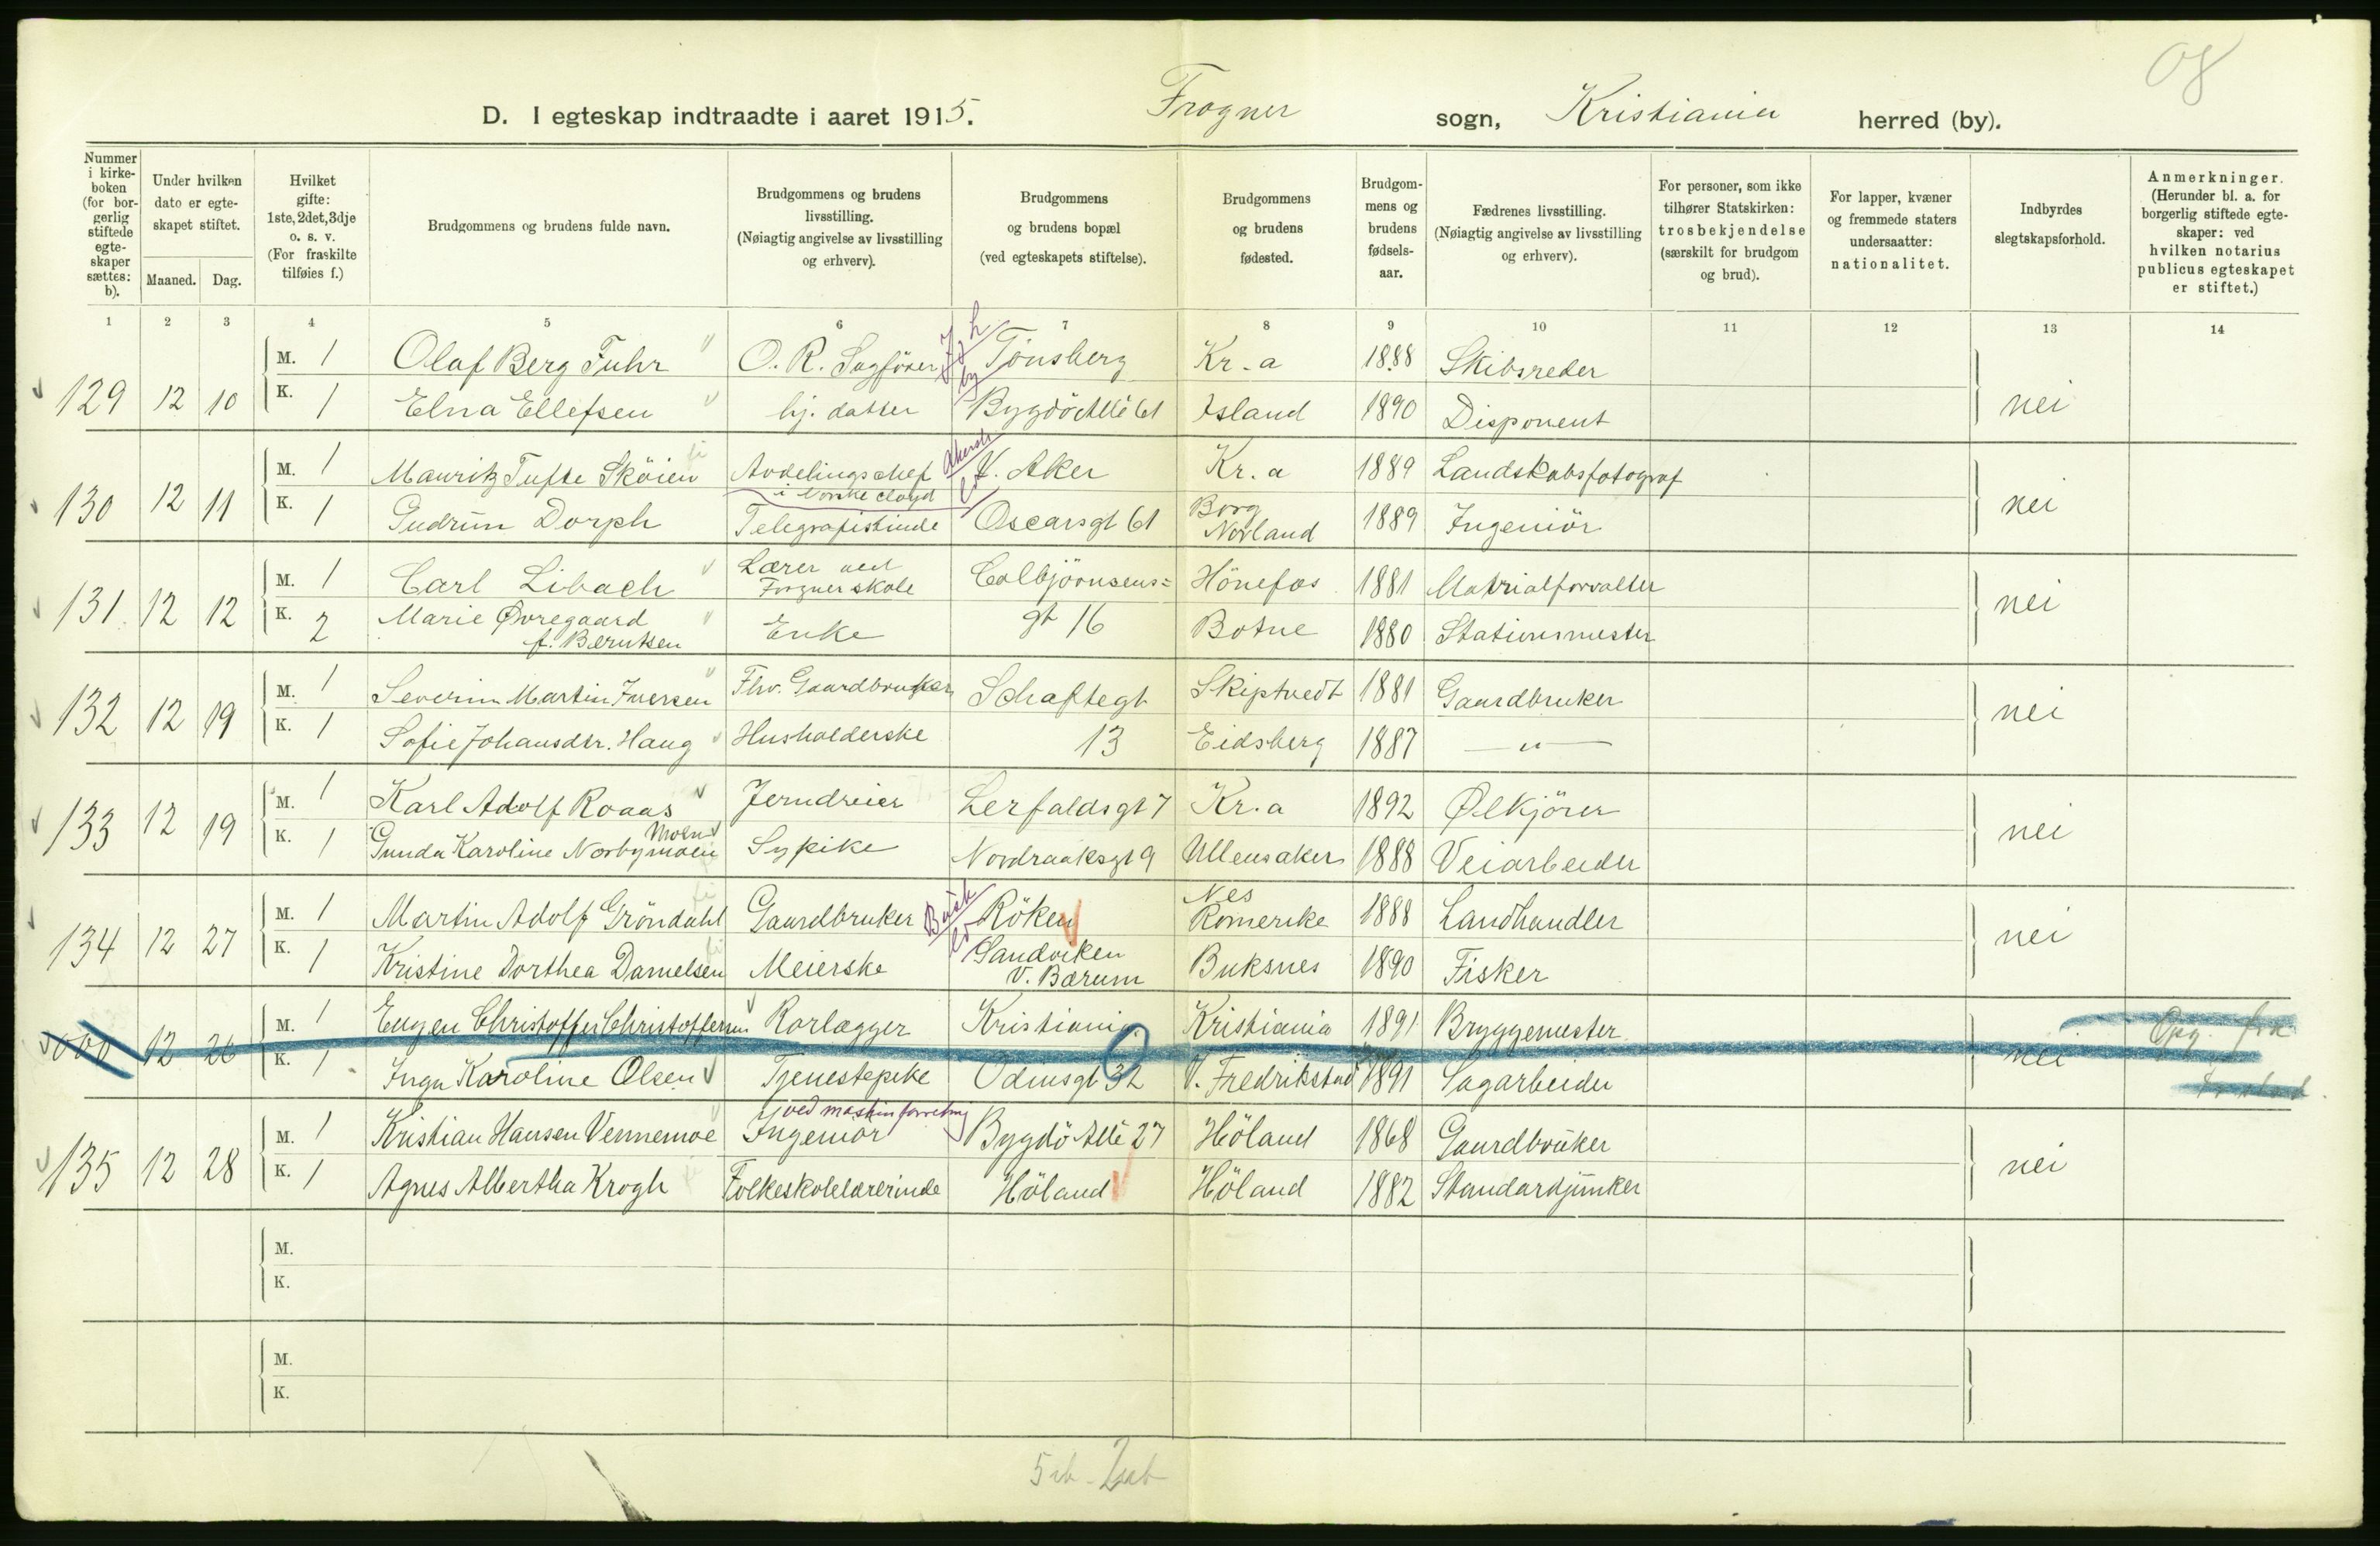 08
D. I egteskap indtraadte i aaret 1915. Frogner sogn, Kristiania herred (by).
Nummer i kirkeboken (for borgerlig stiftede egteskaper sættes: b).
Under hvilken dato er egteskapet stiftet.
Maaned. Dag.
Hvilket gifte: 1ste, 2det, 3dje o. s. v. (For fraskilte tilføies f.)
Brudgommens og brudens fulde navn.
Brudgommens og brudens livsstilling. (Nøiagtig angivelse av livsstilling og erhverv).
Brudgommens og brudens bopæl (ved egteskapets stiftelse).
Brudgommens og brudens fødested.
Brudgommens og brudens fødselsaar.
Fædrenes livsstilling. (Nøiagtig angivelse av livsstilling og erhverv).
For personer, som ikke tilhører Statskirken: trosbekjendelse (særskilt for brudgom og brud).
For lapper, kvæner og fremmede staters undersaatter: nationalitet.
Indbyrdes slegtskapsforhold.
Anmerkninger. (Herunder bl. a. for borgerlig stiftede egteskaper: ved hvilken notarius publicus egteskapet er stiftet.)
1 2 3 4 5 6 7 8 9 10 11 12 13 14
M. 1 Olaf Berg Fuhr O. R. Sagförer Tönsberg Kr.a 1888 Skibsreder
129 12 10 K. 1 Elna Ellefsen hj. datter Bygdö Allé 61 Island 1890 Disponent nei
M. 1 Mauritz Tufte Sköien Avdelingschef i Norske Cloyd V. Aker Kr.a 1889 Landskabsfotograf
130 12 11 K. 1 Gudrun Dorph Telegrafistinde Oscarsgt 61 Borg Norland 1889 Ingeniör nei
M. 1 Carl Libach Lærer ved Frogner skole Colbjörnsens= Hönefos 1881 Matrialforvalter
131. 12 12 K. 2 Marie Øvregaard f. Berntsen Enke gt 16 Botne 1880 Stationsmester nei
M. 1 Severin Martin Iversen Fhv. Gaardbruker Schaftegt Skiptvedt 1881 Gaardbruker
132 12 19 K. 1 Sofie Johansdtr. Haug Husholderske 13 Eidsberg 1887 — " — nei
M. 1 Karl Adolf Roaas Jerndreier Lerfaldsgt 7 Kr.a 1892 Ølkjörer
133 12 19 K. 1 Gunda Karoline Norbymoen Moen Sypike Nordraaksgt 9 Ullensaker 1888 Veiarbeider nei
M. 1 Martin Adolf Gröndahl Gaardbruker Busk Röken Nes Romerike 1888 Landhandler
134 12 27 K. 1 Kristine Dorthea Danielsen Meierske Sandviken V. Bærum Buksnes 1890 Fisker nei
M. 1 Eugen Christoffer Christoffersen Rørlægger Kristiania Kristiania 1891 Bryggemester Opg. fra
000 12 26 K. 1 Inga Karoline Olsen Tjenestepike Odinsgt 32 V. Fredrikstad 1891 Sagarbeider nei
M. 1 Kristian Hansen Vennemoe Ingeniör ved maskinforretning Bygdö Allé 27 Höland 1868 Gaardbruker
135 12 28 K. 1 Agnes Albertha Krogh Folkeskolelærerinde Höland Höland 1882 Standardjunker nei
M.
K.
M.
K.